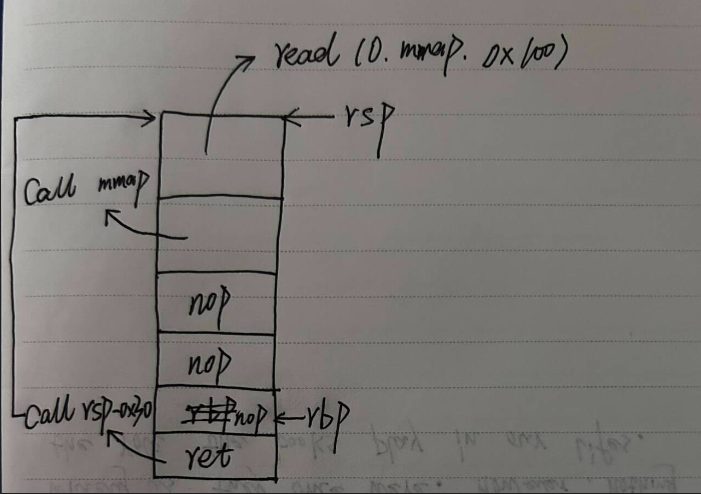 read (0. mmap. 0x100)
rsp
Call mmap
nop
nop
Call rsp-0x30
nop
rbp
ret